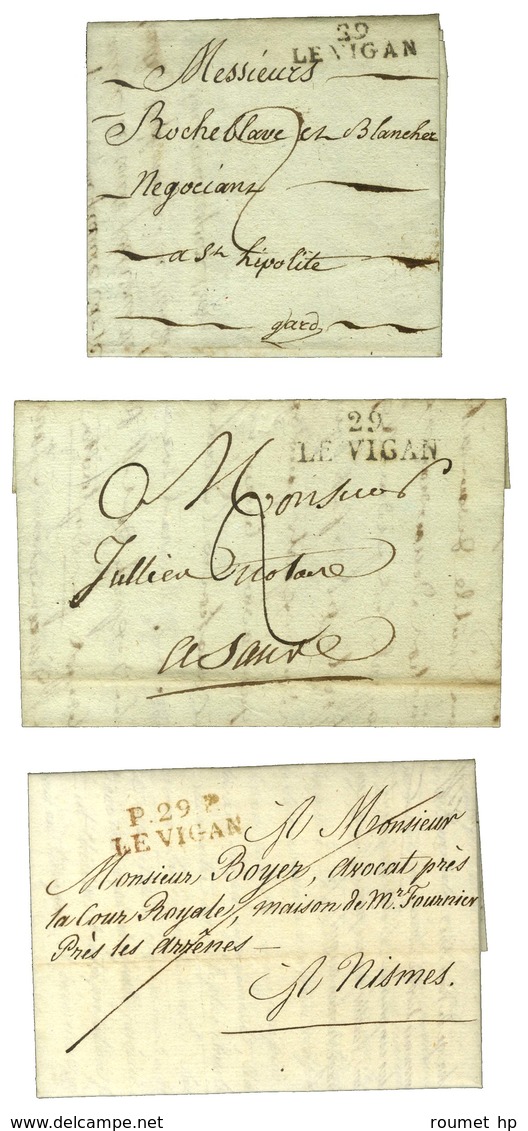 29
LE VIGAN
Messieurs
Rocheblave et Blancher
Negociant
a St hipolite
gard
2
29
LE VIGAN
Monsieur
Jullien notaire
a Sauve
2
P.29.P.
LE VIGAN
A Monsieur
Monsieur Boyer, avocat près
la Cour Royale, maison de Mr. Fournier
Près les arrênes
A Nismes.
roumet hp